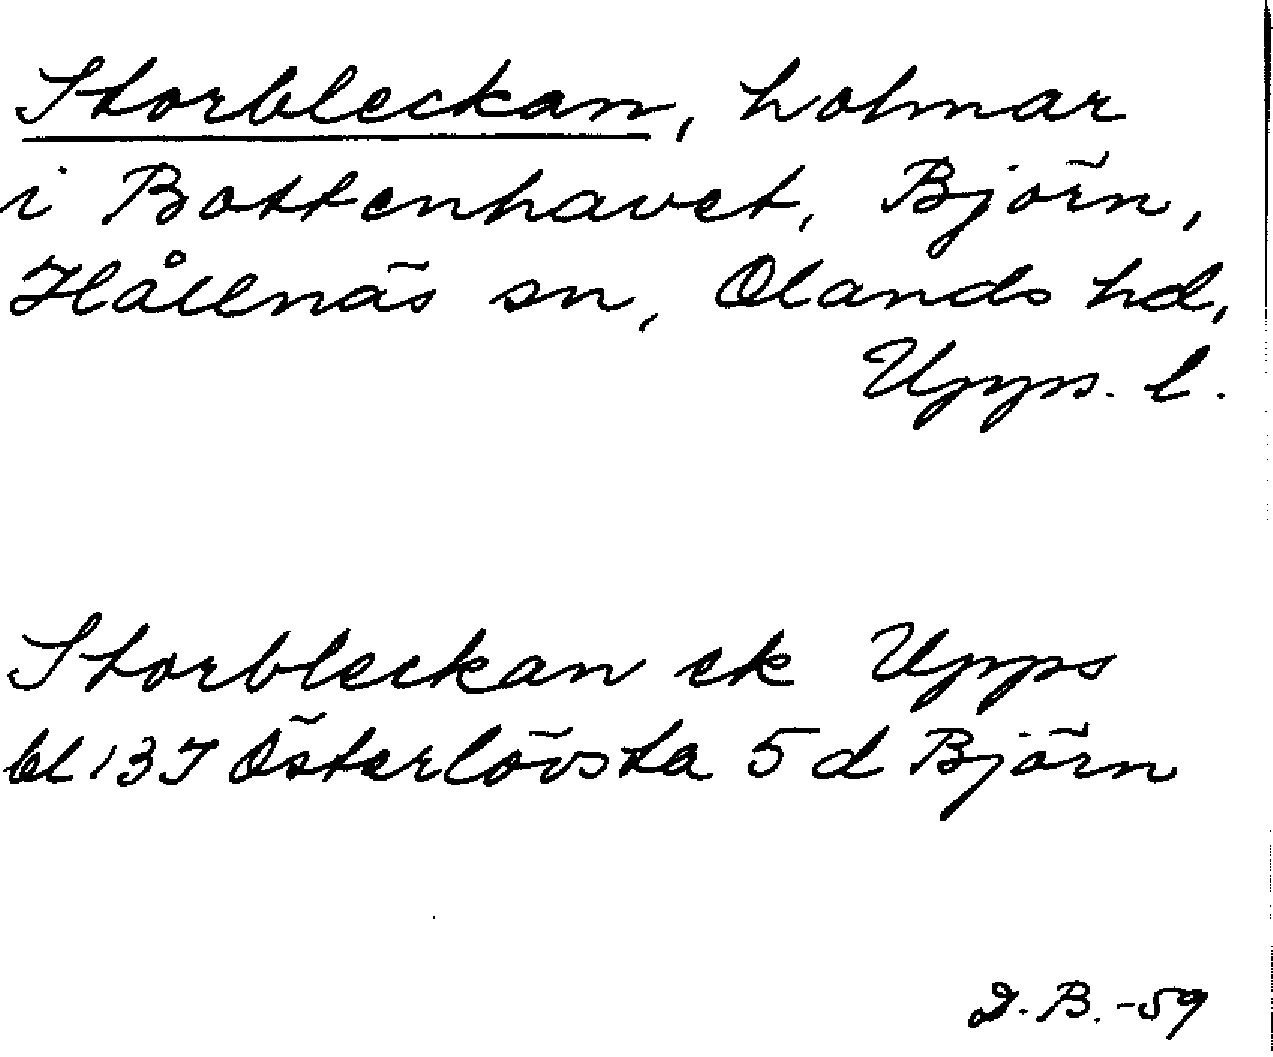 Storbleckan, holmar
i Bottenhavet, Björn,
Hållnäs sn, Olands hd,
Upps. l.
Storbleckan ek Upps
bl 13 I Österlövsta 5 d Björn
I.B. -59